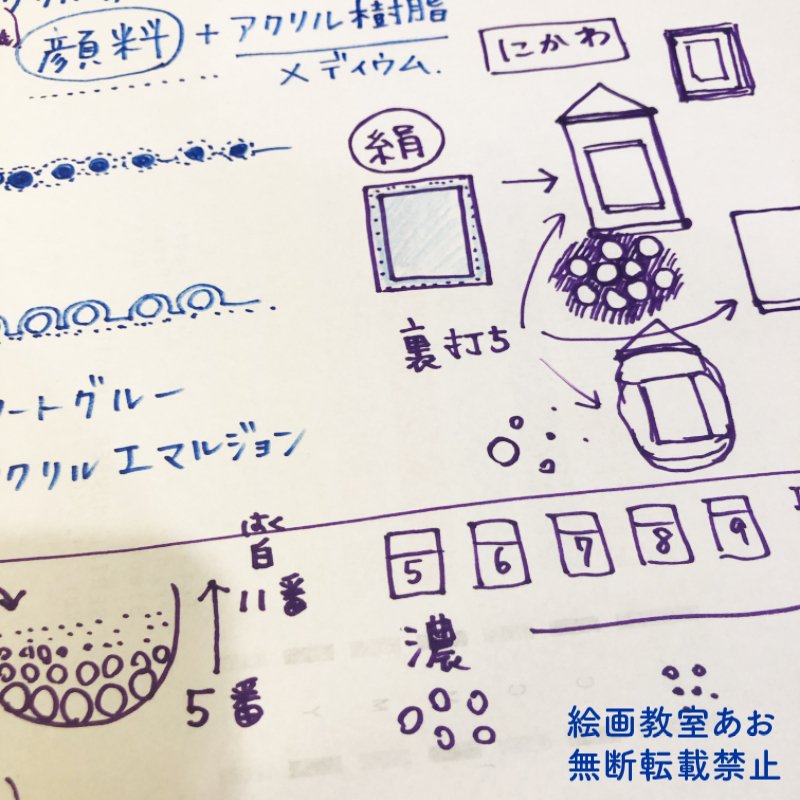 顔料 + アクリル樹脂
メディウム.
にかわ
絹
裏打ち
ートグルー
クリルエマルジョン
はく
白
11番
5番
5 6 7 8 9
濃
絵画教室あお
無断転載禁止